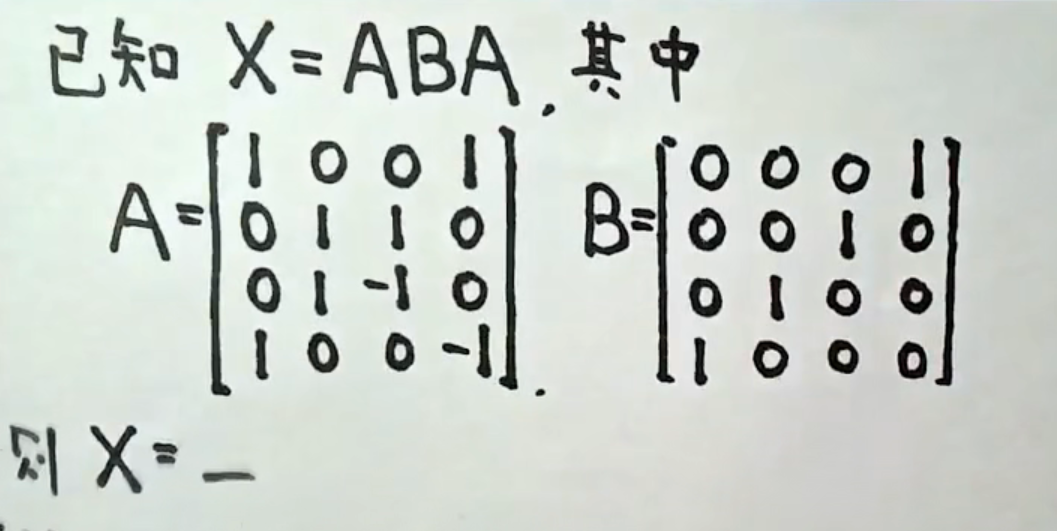 已知 X=ABA,其中
A=[1 0 0 1
0 1 1 0
0 1 -1 0
1 0 0 -1].
B=[0 0 0 1
0 0 1 0
0 1 0 0
1 0 0 0]
则 X=_